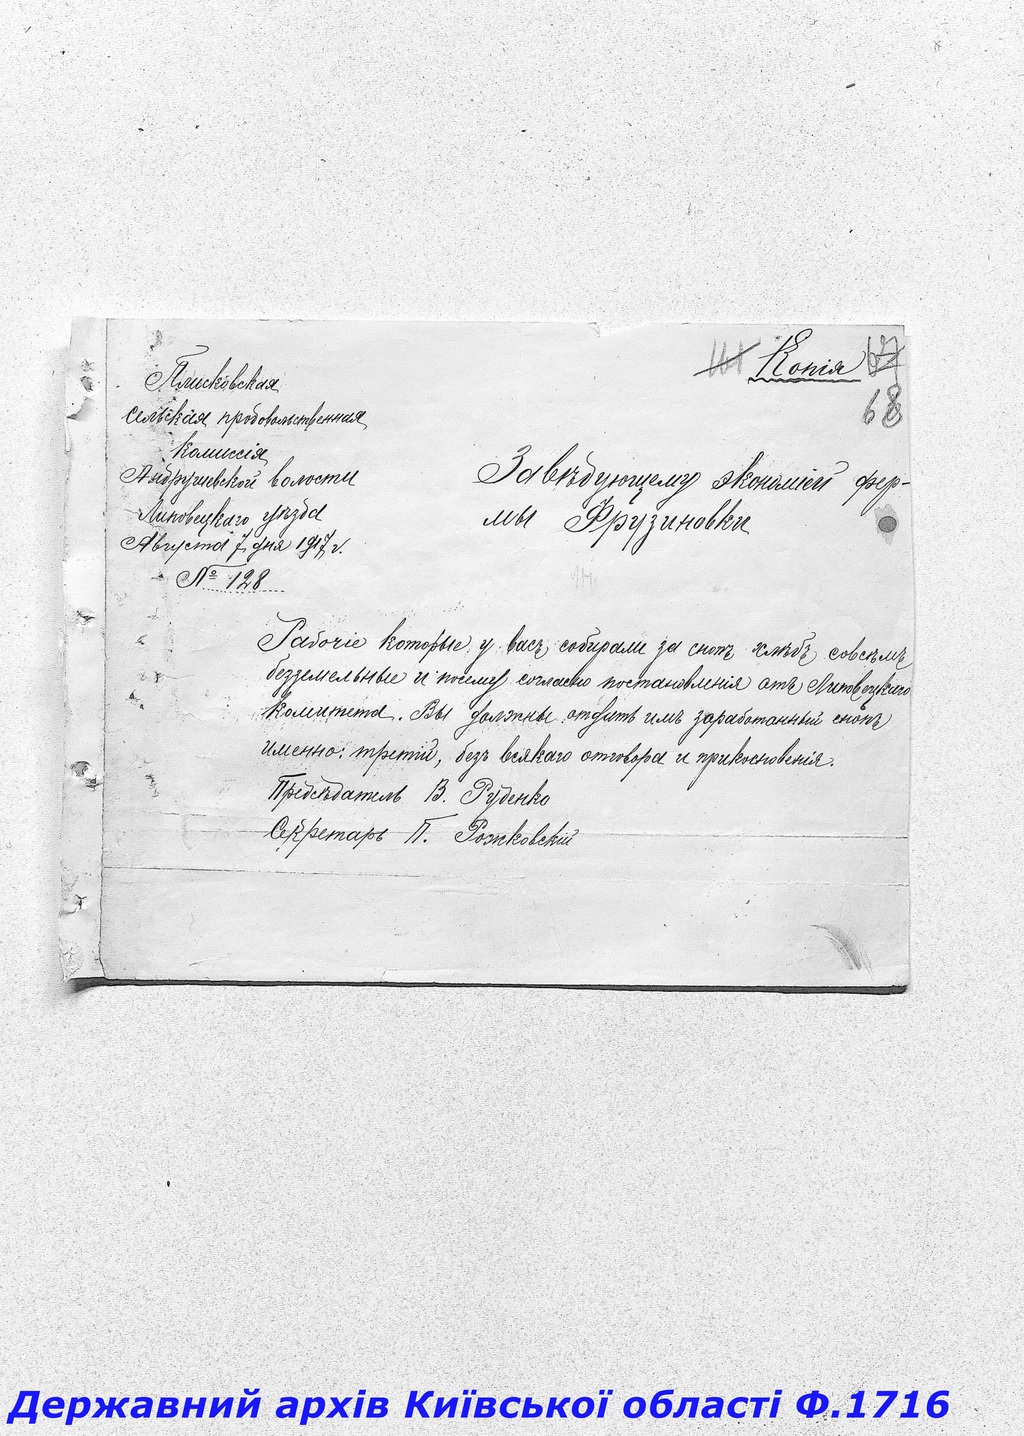 Копія
68
Плисковская
сельская продовольственная
комиссія
Андрушевской волости
Липовецкаго уѣзда
Августа 7 дня 1917 г.
№ 128
Завѣдующему экономіей фер-
мы Фрузиновки
Рабочіе которые у васъ собирали за снопъ хлѣбъ совсѣмъ
безземельные и посему согласно постановленія отъ Липовецкаго
комитета. Вы должны отдать имъ заработанный снопъ
именно: третій, безъ всякаго отговора и прикосновенія.
Предсѣдатель В. Руденко
Секретарь П. Рожковскій
Державний архів Київської області Ф.1716